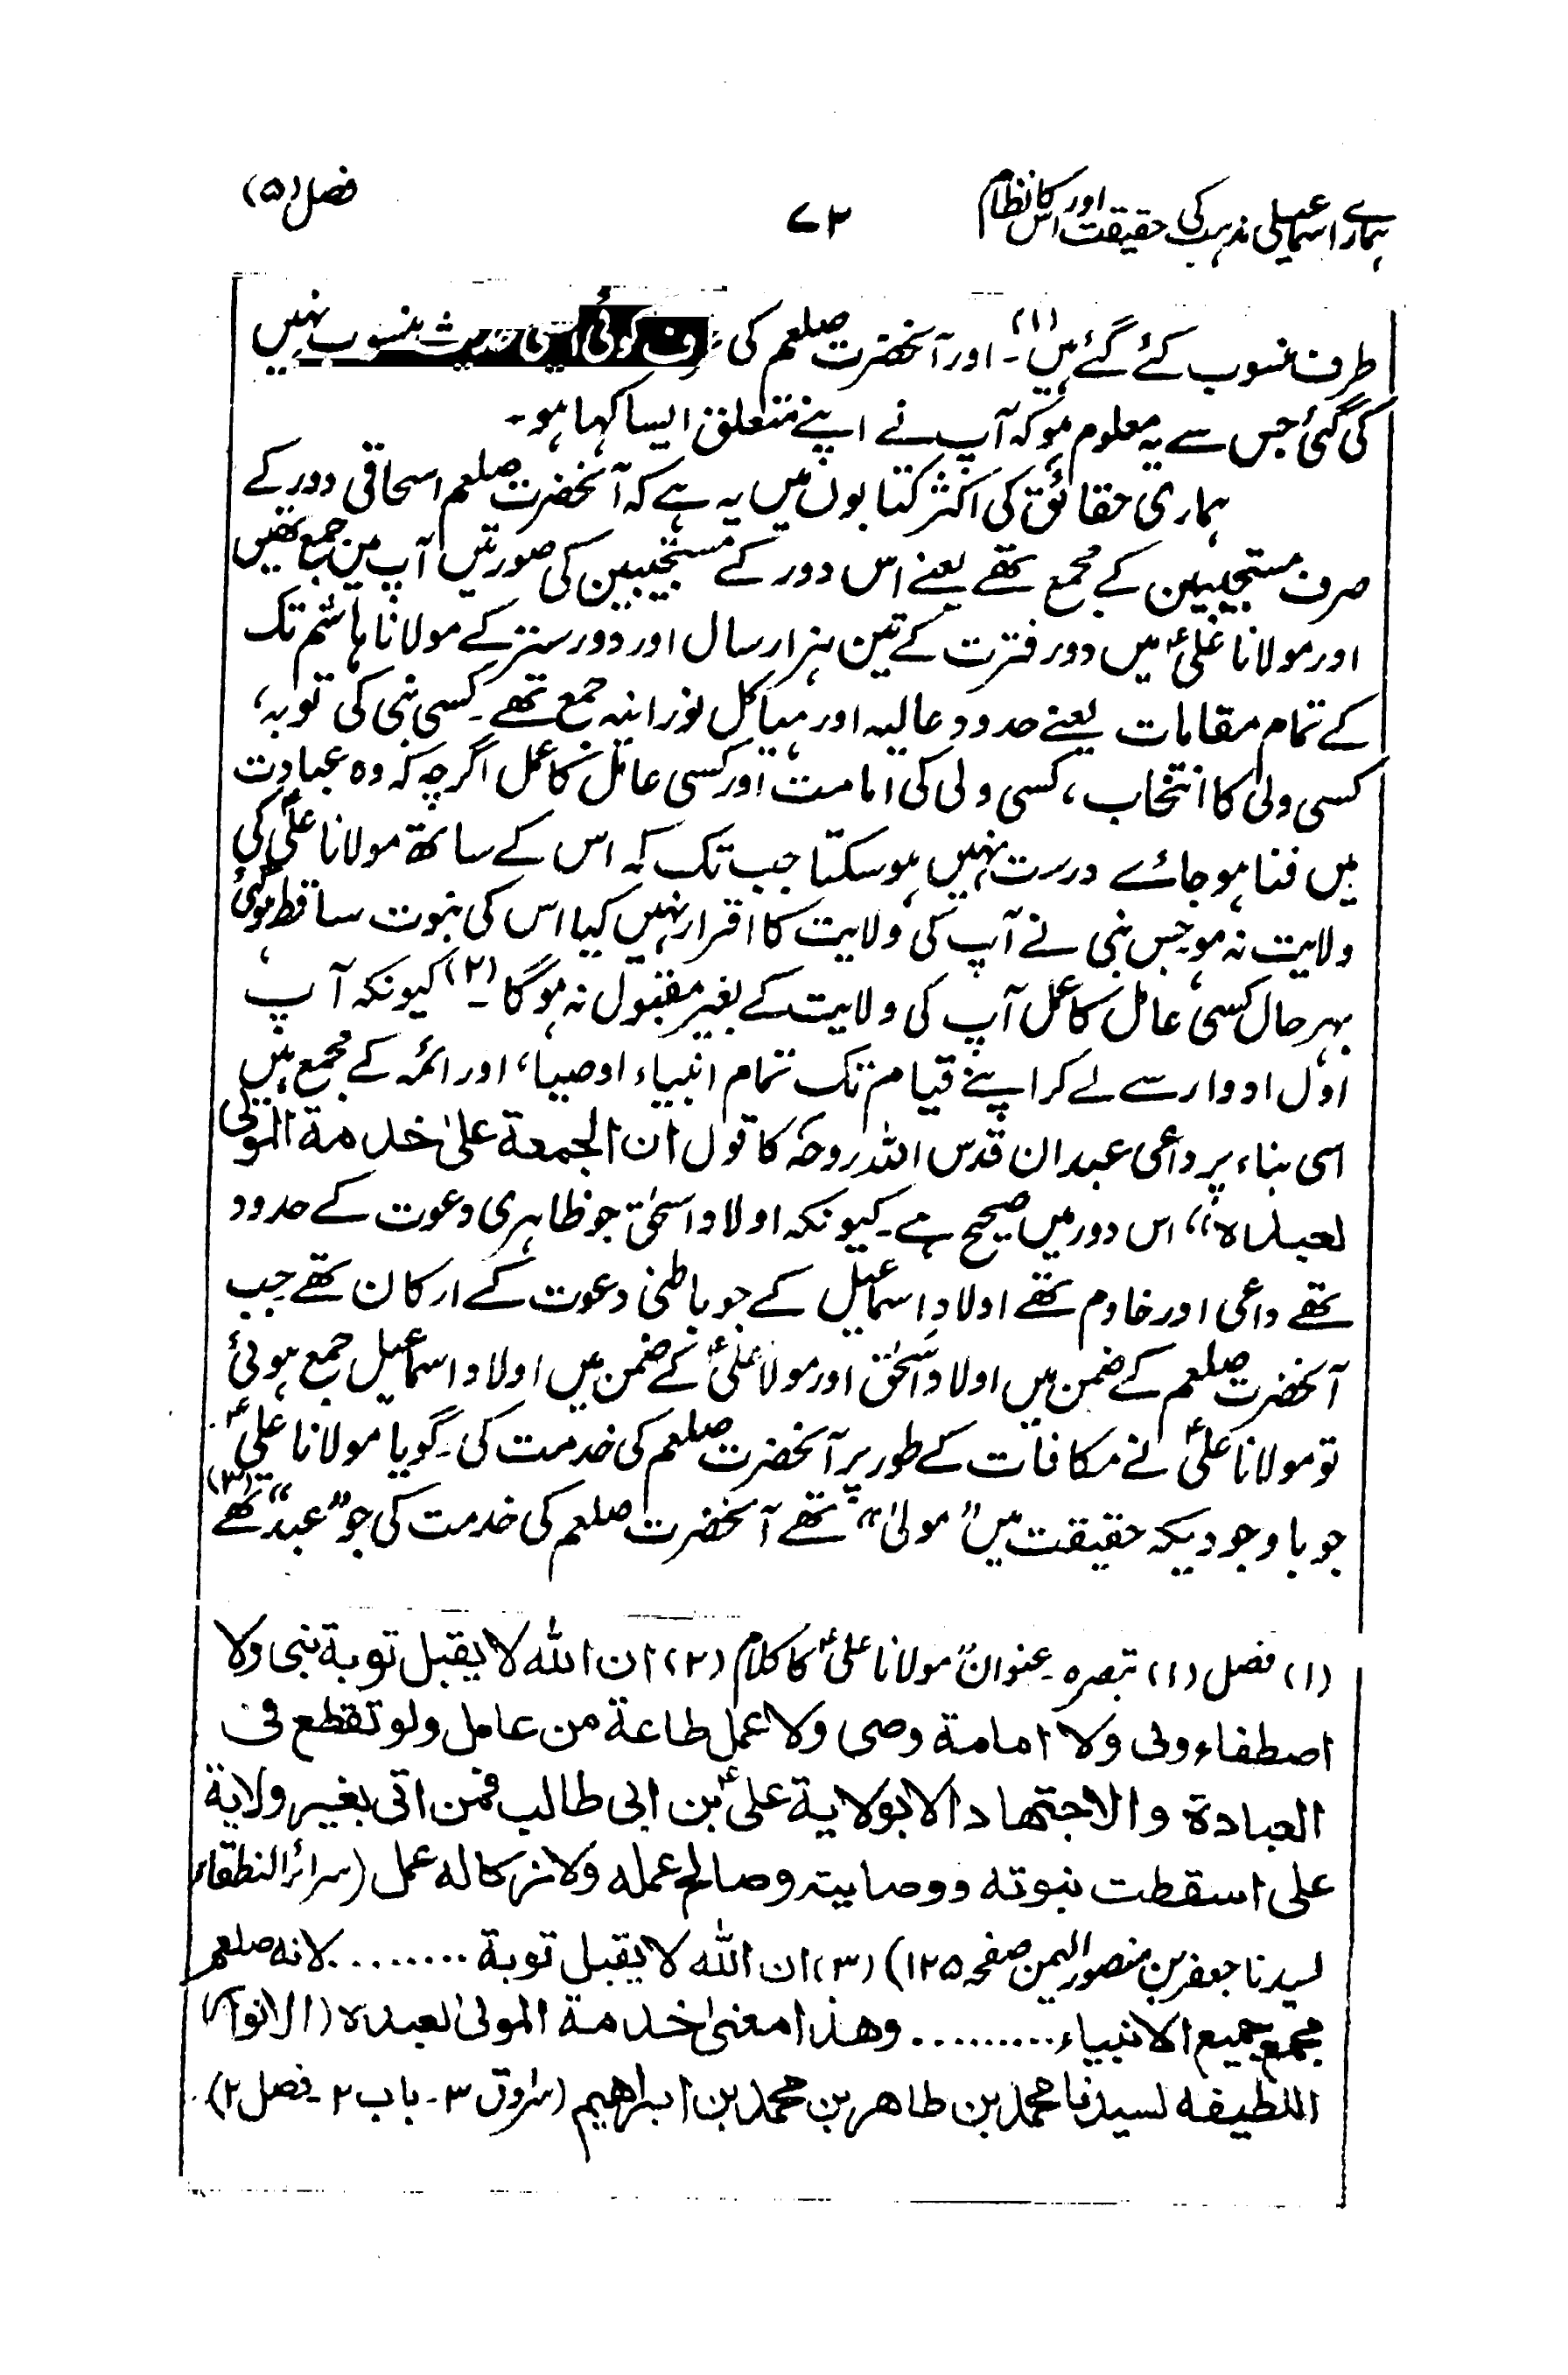 ہمارے اسماعیلی مذہب کی حقیقت اور اس کا نظام
۷۳
فصل (۵)
طرف منسوب کئے گئے ہیں (۱)۔ اور آنحضرت صلعم کی طرف کوئی ایسی حدیث منسوب نہیں
کی گئی جس سے یہ معلوم ہو کہ آپ نے اپنے متعلق ایسا کہا ہو۔
ہماری حقائق کی اکثر کتابوں میں یہ ہے کہ آنحضرت صلعم اسحاقی دور کے
صرف مستجیبین کے مجمع تھے یعنے اس دور کے مستجیبین کی صورتیں آپ میں جمع تھیں
اور مولانا علیؑ میں دور فترت کے تین ہزار سال اور دور ستر کے مولانا ہاشم تک
کے تمام مقامات یعنے حدود عالیہ اور ہیاکل نورانیہ جمع تھے۔ کسی نبی کی توبہ،
کسی ولی کا انتخاب، کسی ولی کی امامت اور کسی عامل کا عمل اگرچہ کہ وہ عبادت
میں فنا ہو جائے درست نہیں ہو سکتا جب تک کہ اس کے ساتھ مولانا علیؑ کی
ولایت نہ ہو جس نبی نے آپ کی ولایت کا اقرار نہیں کیا اس کی نبوت ساقط ہو گئی
بہر حال کسی عامل کا عمل آپ کی ولایت کے بغیر مقبول نہ ہو گا۔ (۲) کیونکہ آپ
اول ادوار سے لے کر اپنے قیام تک تمام انبیاء اوصیا، اور ائمہ کے مجمع ہیں
اسی بناء پر داعی عبدان قدس اللہ روحہ کا قول ان الجمعة علیٰ خدمة المولی
لعبدہ“ اس دور میں صحیح ہے۔ کیونکہ اولاد اسحٰق جو ظاہری دعوت کے حدود
تھے داعی اور خادم تھے اولادِ اسماعیل کے جو باطنی دعوت کے ارکان تھے جب
آنحضرت صلعم کے ضمن میں اولاد اسحٰق اور مولا علیؑ کے ضمن میں اولاد اسماعیل جمع ہوئی
تو مولانا علیؑ نے مکافات کے طور پر آنحضرت صلعم کی خدمت کی۔ گویا مولانا علیؑ
جو باوجودیکہ حقیقت میں ”مولیٰ“ تھے آنحضرت صلعم کی خدمت کی جو ”عبد“ تھے (۳)
(۱) فصل (۱) تبصرہ۔ عنوان ”مولانا علیؑ کا کلام (۲) ان اللہ لا یقبل توبة نبی ولا
اصطفاء ولی ولا امامة وصی ولا عمل طاعة من عامل ولو تقطع فی
العبادة والاجتھاد الا بولایة علیؑ بن ابی طالب فمن اتی بغیر ولایة
علی اسقطت نبوته ووصایته وصالح عمله ولا زکا له عمل (سرائر النطقاء
لسیدنا جعفر بن منصور الیمن صفحہ ۱۲۵) (۳) ان اللہ لا یقبل توبة ........ لانه صلعم
مجمع جمیع الانبیاء ......... وھذا معنیٰ خدمة المولیٰ لعبدہ (الانوار
اللطیفه لسیدنا محمد بن طاھر بن محمد بن ابراھیم (سرادق ۳۔ باب ۲۔ فصل ۲)